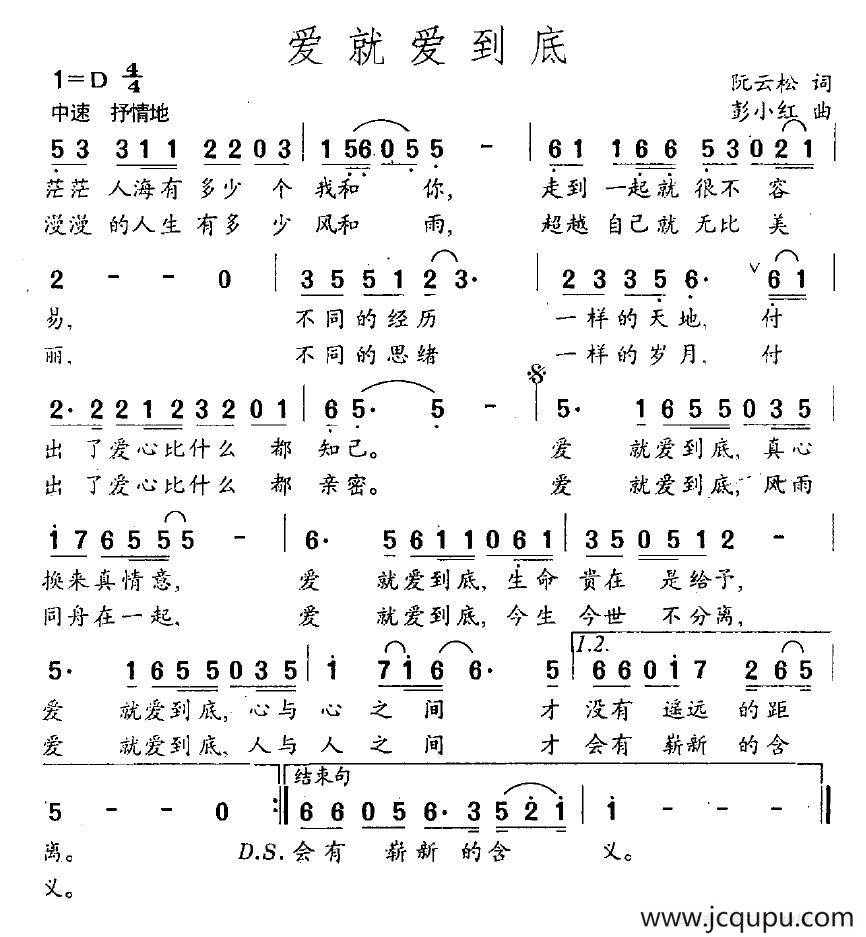 爱就爱到底
1=D 4/4
阮云松 词
中速 抒情地
彭小红 曲
5 3 3 1 1 2 2 0 3 | 1 5 6 0 5 5 - | 6 1 1 6 6 5 3 0 2 1 |
茫茫 人海有 多少 个 我和 你, 走到 一起就 很不 容
漫漫 的人生 有多 少 风和 雨, 超越 自己就 无比 美
2 - - 0 | 3 5 5 1 2 3· | 2 3 3 5 6· ∨ 6 1 |
易, 不同的经历 一样的天地, 付
丽, 不同的思绪 一样的岁月, 付
2· 2 2 1 2 3 2 0 1 | 6 5· 5 - | 5· 1 6 5 5 0 3 5 |
出 了爱心比什么 都 知己。 爱 就爱到底,真心
出 了爱心比什么 都 亲密。 爱 就爱到底,风雨
1 7 6 5 5 5 - | 6· 5 6 1 1 0 6 1 | 3 5 0 5 1 2 - |
换来真情意, 爱 就爱到底,生命 贵在 是给予,
同舟在一起, 爱 就爱到底,今生 今世 不分离,
1.2.
5· 1 6 5 5 0 3 5 | 1 7 1 6 6· 5 | 6 6 0 1 7 2 6 5 |
爱 就爱到底,心与 心 之 间 才 没有 遥远 的距
爱 就爱到底,人与 人 之 间 才 会有 崭新 的含
结束句
5 - - 0 :‖ 6 6 0 5 6· 3 5 2 1 | 1 - - - ‖
离。 D.S. 会有 崭新 的含 义。
义。
www.jcqupu.com